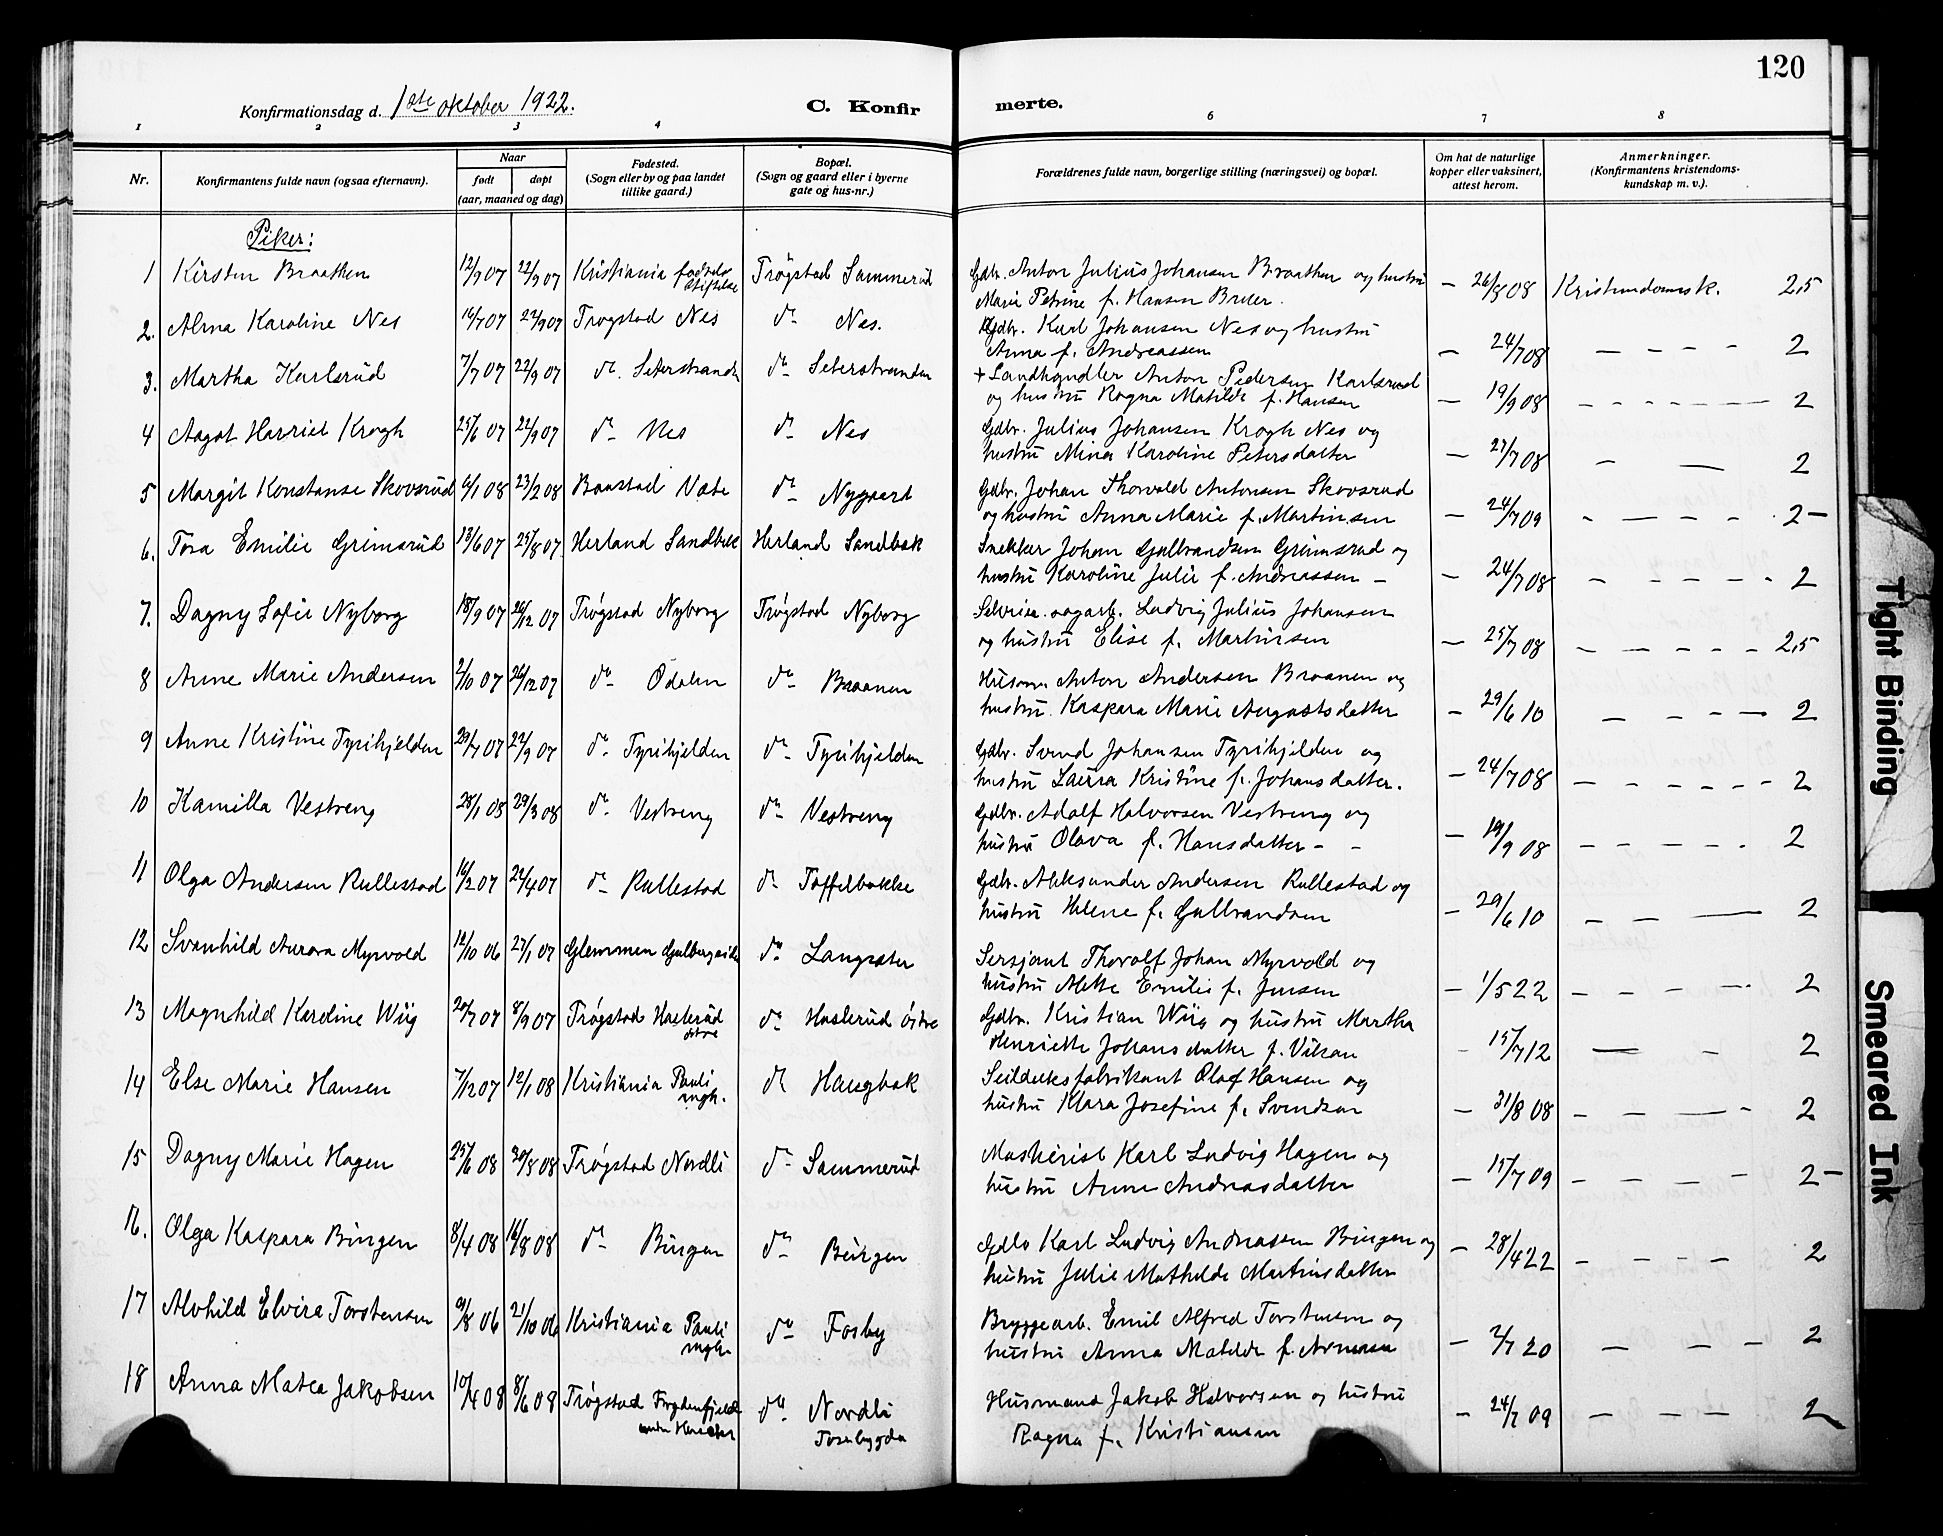 120
Konfirmationsdag d. 1ste oktober 1922.
C. Konfir merte.
1 2 3 4 6 7 8
Nr. Konfirmantens fulde navn (ogsaa efternavn). Naar født døpt (aar, maaned og dag) Fødested. (Sogn eller by og paa landet tillike gaard.) Bopæl. (Sogn og gaard eller i byerne gate og hus-nr.) Forældrenes fulde navn, borgerlige stilling (næringsvei) og bopæl. Om hat de naturlige kopper eller vaksinert, attest herom. Anmerkninger. (Konfirmantens kristendoms-kundskap m. v.).
Piker:
1 Kirsten Braathen 12/9 07 22/9 07 Kristiania fødselsstiftelse Trøgstad Sammerud Gdbr. Anton Julius Johansen Braathen og hustru
Marie Petrine f. Hansen — 26/8 08 Kristendomsk. 2,5
2. Alma Karoline Nes 16/7 07 22/9 07 Trøgstad Nes do Nes. Gdbr. Karl Johansen Nes og hustru
Anna f. Andreassen — 24/7 08 — — — — 2
3. Martha Karlsrud 7/7 07 22/9 07 do. Seterstranden do Seterstranden + Landhandler Anton Pedersen Karlsrud
og hustru Ragna Matilde f. Hansen — 19/9 08 — — — — 2
4 Aagot Harriet Krogh 25/6 07 22/9 07 do Nes do Nes Gdbr. Julius Johansen Krogh Nes og
hustru Mina Karoline Petersdatter — 27/7 08 — — 2
5 Margit Konstanse Skovsrud 6/1 08 23/2 08 Baastad do Nygaard Gdbr. Johan Thorvald Antonsen Skovsrud
og hustru Anna Marie f. Martinsen — 24/7 09 — — — — 2 —
6. Tora Emilie Grimsrud 13/6 07 25/8 07 Herland Sandbek Herland Sandbæk Snekker Johan Gulbrandsen Grimsrud og
hustru Karoline Julie f. Andreassen — — 24/7 08 — — — — 2
7. Dagny Sofie Nyborg 18/9 07 26/12 07 Trøgstad Nyborg Trøgstad Nyborg Selveier. sagarb. Ludvig Julius Johansen
og hustru Elise f. Martinsen — 25/7 08 — — — — — 2,5
8 Anne Marie Andersen 2/10 07 26/12 07 do Ødalen do Braanen Husm. Anton Andersen Braanen og
hustru. Kaspara Marie Augustsdatter — 29/6 10 — — — — 2
9 Anne Kristine Tyrihjelden 29/7 07 22/9 07 do Tyrihjelden do Tyrihjelden Gdbr. Svend Johansen Tyrihjelden og
hustru Laura Kristine f. Johansdatter. — 24/7 08 — — — — — — 2
10 Kamilla Vestreng 28/1 08 29/3 08 do Vestreng do Vestreng Gdbr. Adolf Halvorsen Vestreng og
hustru Olava f. Hansdatter — — — 19/9 08 — — — — — 2
11 Olga Andersen Rullestad 16/2 07 22/4 07 do Rullestad do Toffelbakke Gdbr. Aleksander Andersen Rullestad og
hustru Helene f. Gulbrandsen — 29/6 10 — — — 2
12 Svanhild Aurora Myrvold 12/10 06 27/1 07 Glemmen do Langsæter Sersjant Thorolf Johan Myrvold og
hustru Alette Emilie f. Jensen — 1/5 22 — — — — 2
13 Magnhild Karoline Wiig 20/7 07 8/9 07 Trøgstad Haslerud østre do Haslerud østre Gdbr. Kristian Wiig og hustru Martha
Henriette Johansdatter f. Viksan — 15/7 12 — — 2
14 Else Marie Hansen 7/12 07 12/1 08 Kristiania Pauli mgh. do Haugbak Seildukfabrikant Olaf Hansen og
hustru Klara Josefine f. Svendsen — 31/8 08 — — — — 2
15 Dagny Marie Hagen 25/6 08 30/8 08 Trøgstad Nordli do Sammerud Maskinist Karl Ludvig Hagen og
hustru Anne Andreasdatter — 15/7 09 — — — — 2 —
16. Olga Kaspara Bingen 8/4 08 16/8 08 do Bingen do Bingen Gdbr Karl Ludvig Andreassen Bingen og
hustru Julie Mathilde Martinsdatter — 28/4 22 — — — — 2
17 Alvhild Elvira Torstensen 9/8 06 21/10 06 Kristiania Pauli mgh. do Fosby Bryggearb. Emil Alfred Torstensen og
hustru Anna Matilde f. — 2/7 20 — — — — 2
18 Anna Matea Jakobsen 10/4 08 8/6 08 Trøgstad Frydenfjeld do Nordli Husmand Jakob Halvorsen og hustru
Ragna f. Kristiansen — 24/7 09 — — — 2
Tight Binding
Smeared Ink